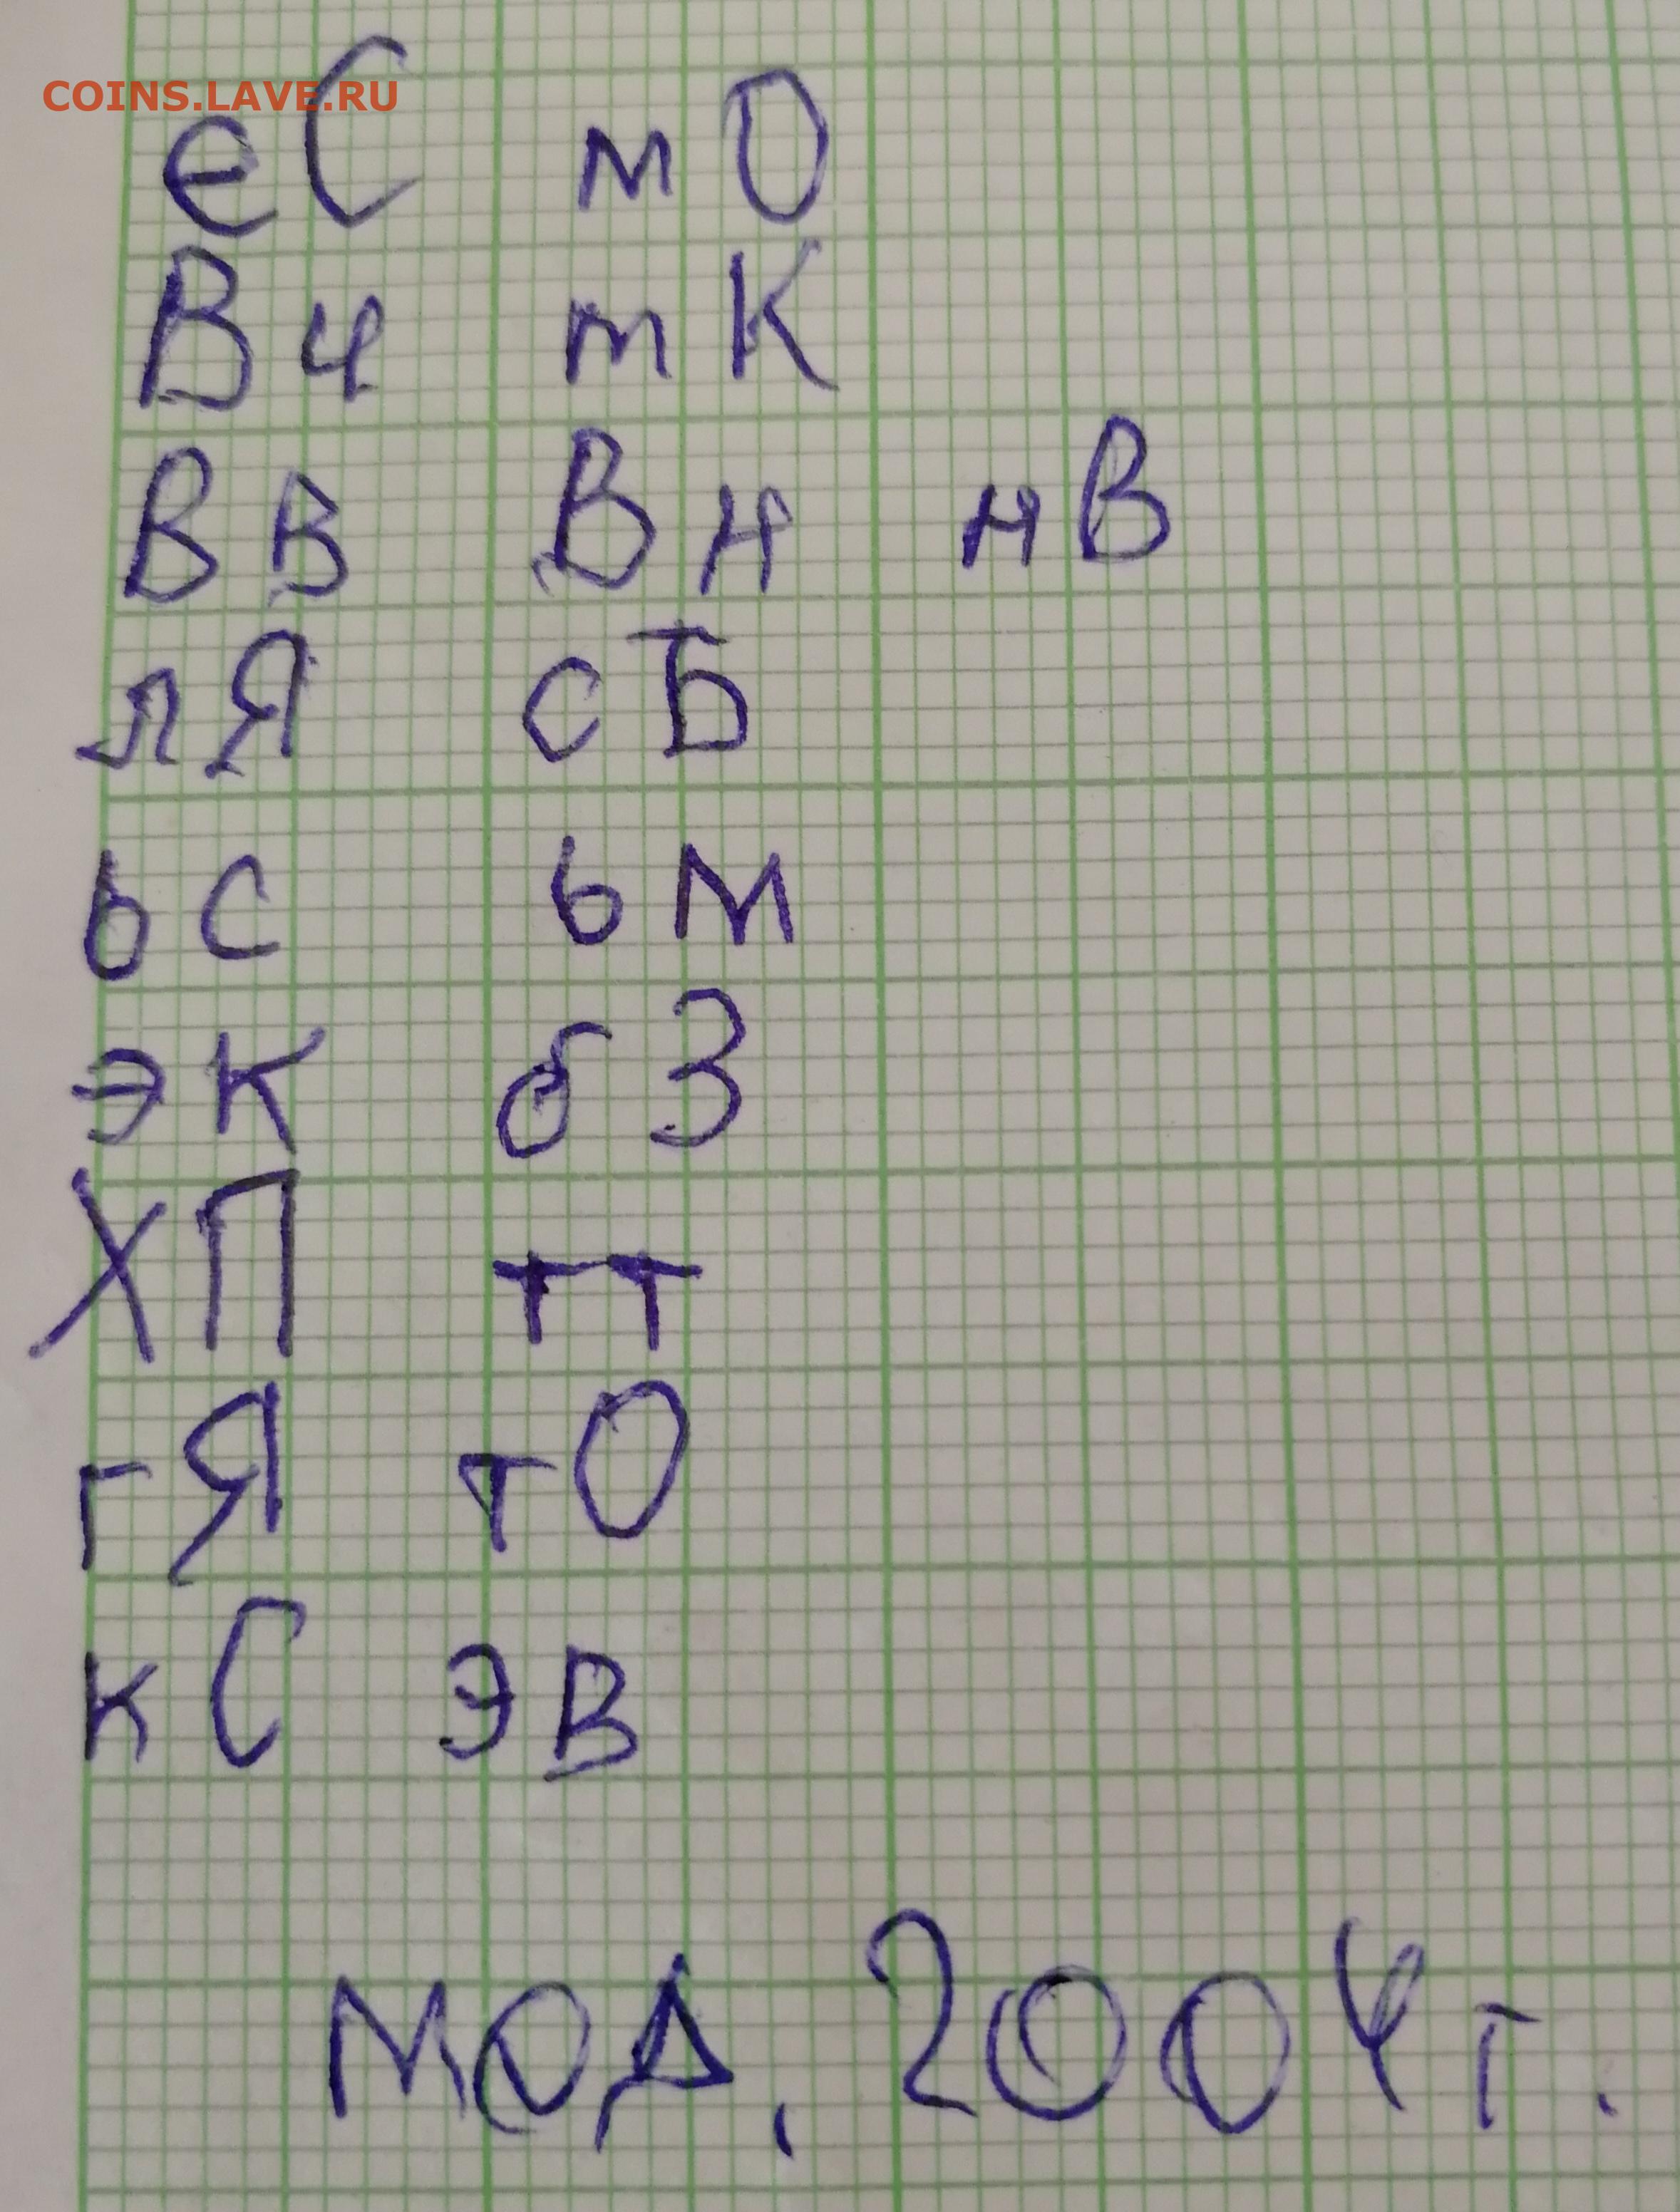 COINS.LAVE.RU
еС мО
Вч тК
Вв Вн нВ
лЯ сБ
ьс ьм
эк бЗ
ХП тт
гЯ тО
кС эв
мод. 2004 г.